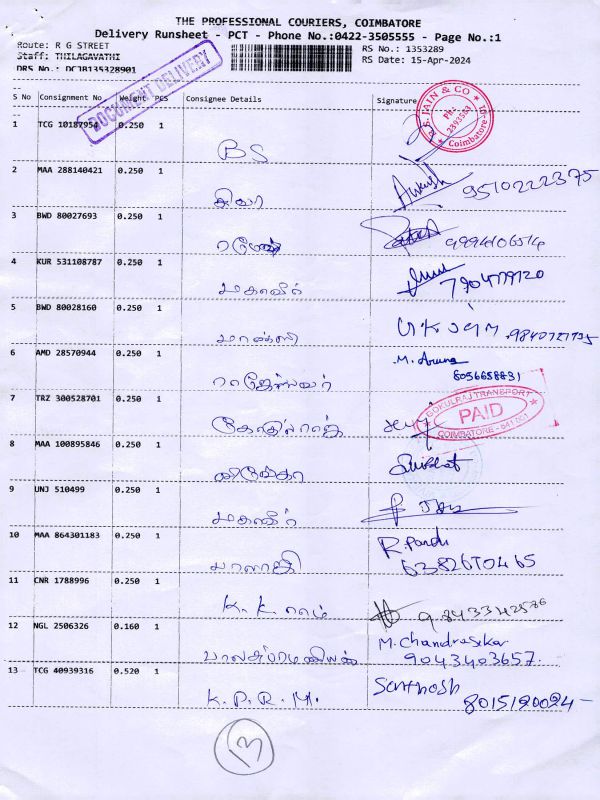 THE PROFESSIONAL COURIERS, COIMBATORE
Delivery Runsheet - PCT - Phone No.:0422-3505555 - Page No.:1
Route: R G STREET
RS No.: 1353289
Staff: THILAGAVATHI
RS Date: 15-Apr-2024
DRS No.: DCJ8135328901
DOCUMENT DELIVERY
S No Consignment No Weight PCS Consignee Details Signature
1 TCG 10187954 0.250 1
BS
JAIN & CO
PH:
2393583
Coimbatore
2 MAA 288140421 0.250 1
சிவா 9510222375
3 BWD 80027693 0.250 1
ரமேஷ் 9994106514
4 KUR 531108787 0.250 1
மகாவீர்
5 BWD 80028160 0.250 1
6 AMD 28570944 0.250 1
ராஜேஸ்வர் M. Aruna
8056658831
7 TRZ 300528701 0.250 1
GOKULRAJ TRANSPORT
PAID
COIMBATORE - 641 001
8 MAA 100895846 0.250 1
9 UNJ 510499 0.250 1
மகாவீர்
10 MAA 864301183 0.250 1
பாலாஜி R. Pandi
6382670465
11 CNR 1788996 0.250 1
K.K. ராம்
12 NGL 2506326 0.160 1
பாலசுப்ரமணியன் M. Chandrasekar
9043403657.
13 TCG 40939316 0.520 1
K.P.R.M. Santhosh
8015120024
13